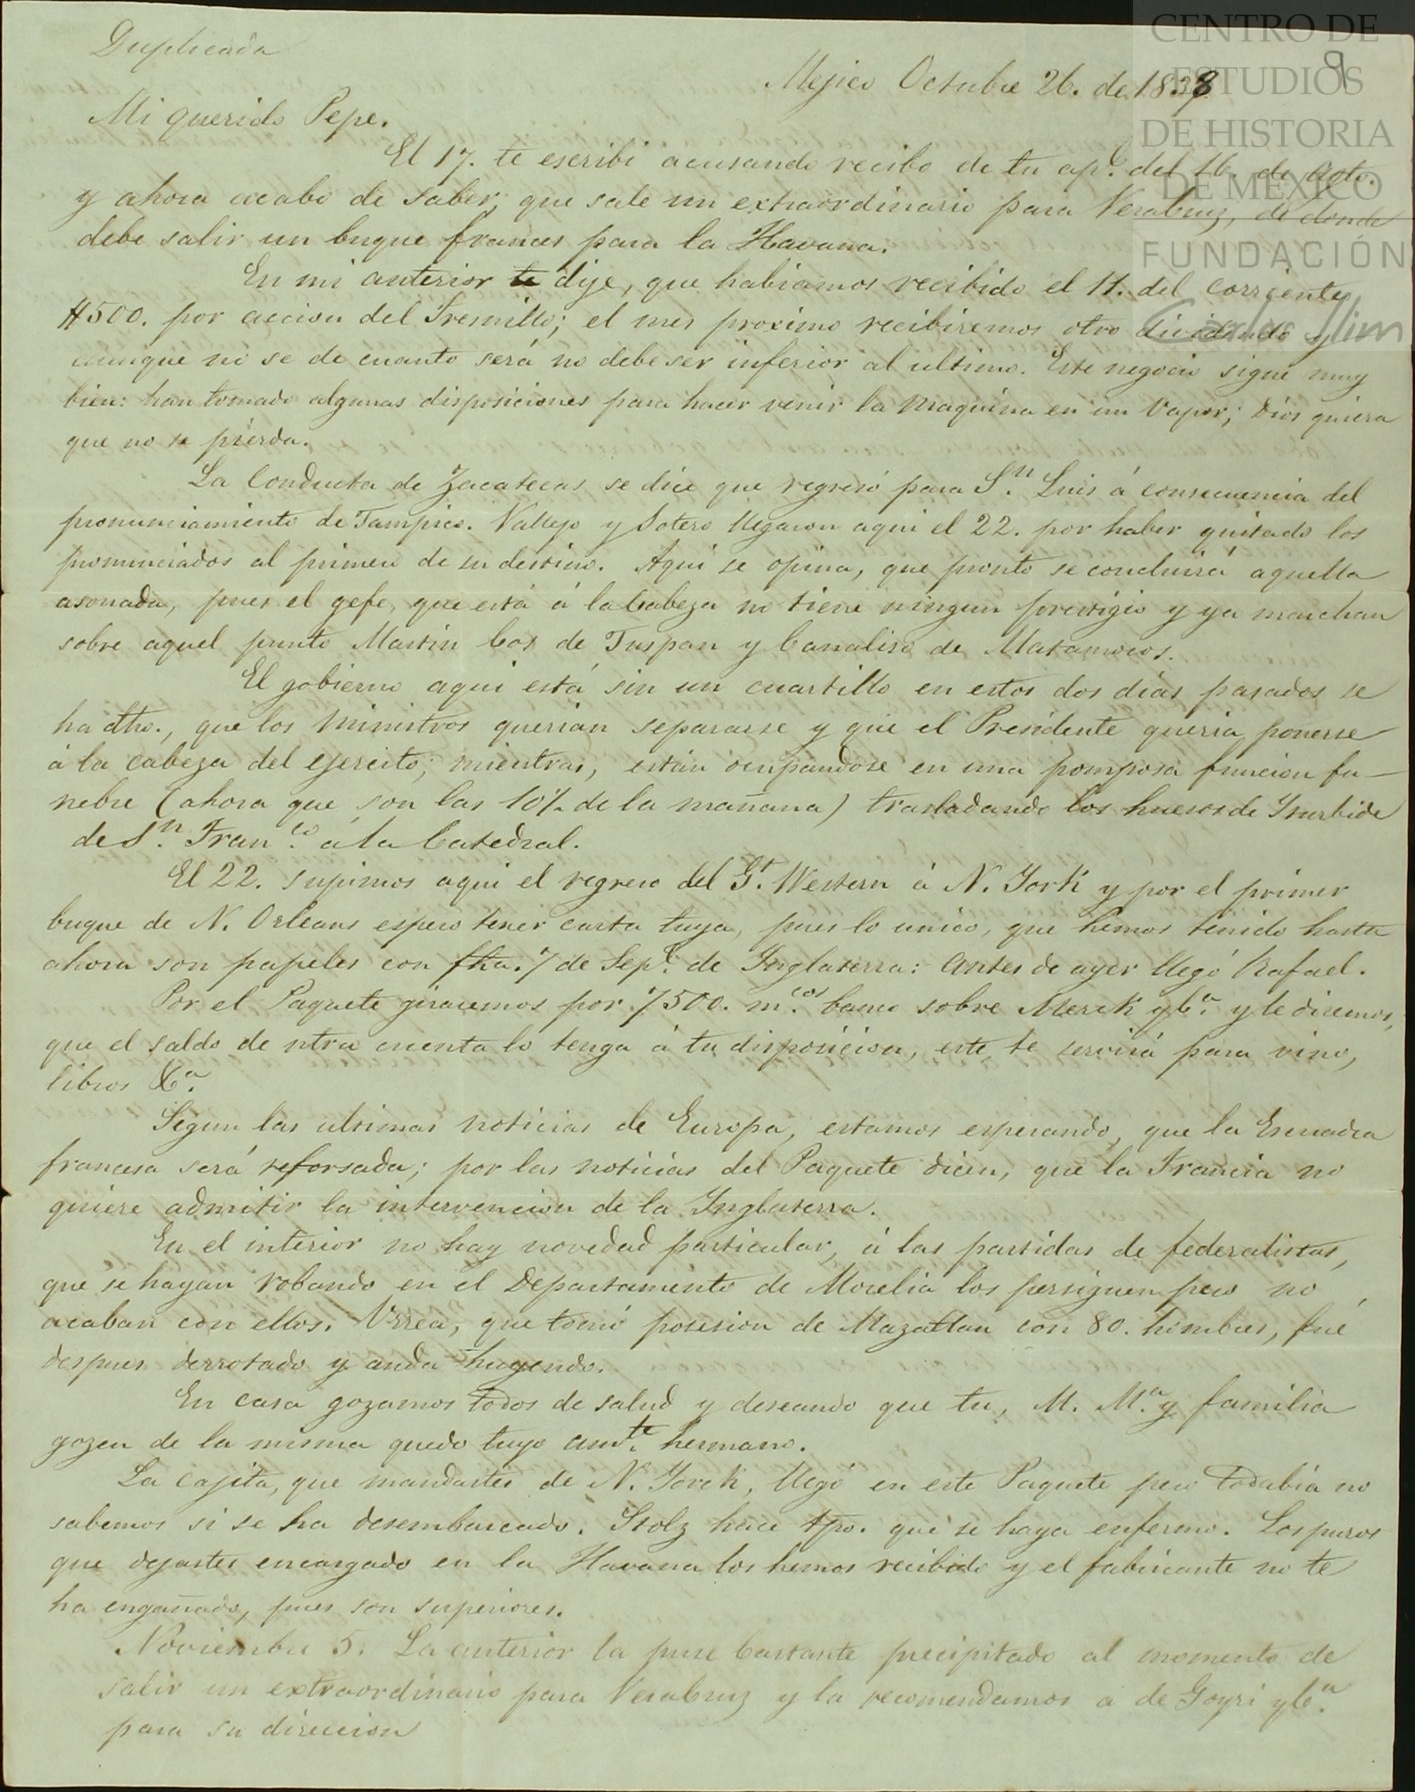 CENTRO DE
ESTUDIOS
DE HISTORIA
DE MÉXICO
FUNDACIÓN
Carlos Slim
9
Duplicada
Mejico Octubre 26. de 1838
Mi querido Pepe.
El 17. te escribi acusando recibo de tu ap.ᵈ del 16. de Agto.
y ahora acabo de saber, que sale un extraordinario para Veracruz, de donde
debe salir un buque frances para la Havana.
En mi anterior te dije, que habiamos recibido el 11. del corriente
$500. por accion del Fresnillo; el mes proximo recibiremos otro dividendo y
aunque no se de cuanto será no debe ser inferior al ultimo. Este negocio sigue muy
bien: han tomado algunas disposiciones para hacer venir la maquina en un Vapor; Dios quiera
que no se pierda.
La Conducta de Zacatecas se dice que regresó para S.ⁿ Luis á consecuencia del
pronunciamiento de Tampico. Vallejo y Sotero llegaron aqui el 22. por haber quitado los
pronunciados al primero de su destino. Aqui se opina, que pronto se concluirá aquella
asonada, pues el gefe, que está á la Cabeza no tiene ningun prestigio y ya marchan
sobre aquel punto Martin Cos de Tuspan y Canaliso de Matamoros.
El gobierno aqui está sin un cuartillo en estos dos dias pasados se
ha dho., que los Ministros querian separarse y que el Presidente queria ponerse
á la cabeza del ejercito; mientras, están ocupandose en una pomposa funcion fu-
nebre (ahora que son las 10½ de la mañana) trasladando los huesos de Iturbide
de S.ⁿ Fran.ᶜᵒ á la Catedral.
El 22. supimos aqui el regreso del G.ᵗ Western á N. York y por el primer
buque de N. Orleans espero tener carta tuya, pues lo unico, que hemos tenido hasta
ahora son papeles con fha. 7 de Sep.ᵉ de Inglaterra: Antes de ayer llegó Rafael.
Por el Paquete giraremos por 7500. m.ᶜᵒˢ banco sobre Merck y C.ᵃ y le diremos,
que el saldo de ntra cuenta lo tenga á tu disposicion, este te servirá para vino,
libros &.ᵃ
Segun las ultimas noticias de Europa, estamos esperando, que la Escuadra
francesa será reforsada; por las noticias del Paquete dicen, que la Francia no
quiere admitir la intervencion de la Inglaterra.
En el interior no hay novedad particular, á las partidas de federalistas,
que se hayan robando en el Departamento de Morelia los persiguen pero no
acaban con ellos. Urrea, que tomó posesion de Mazatlan con 80. hombres, fué
despues derrotado y anda huyendo.
En casa gozamos todos de salud y deseando que tu, M. M.ᵃ y familia
gozen de la misma quedo tuyo am.ᵗᵉ hermano.
La cajita, que mandastes de N. Yorck, llegó en este Paquete pero todabia no
sabemos si se ha desembarcado. Stolz hace tpo. que se haya enfermo. Los puros
que dejastes encargado en la Havana los hemos recibido y el fabricante no te
ha engañado, pues son superiores.
Noviembre 5. La anterior la puse bastante precipitado al momento de
salir un extraordinario para Veracruz y la recomendamos a de Goyri y C.ᵃ
para su direccion